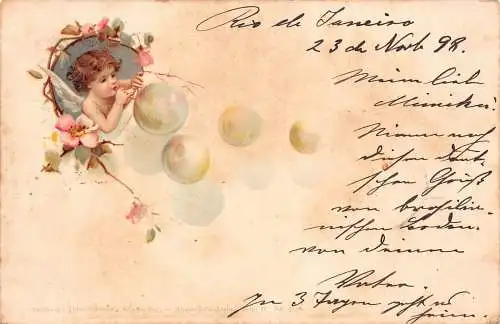 Rio de Janeiro
23 de Novb 98.
Mein lieb
Mimiku!
Nimm noch
diesen deut-
schen Gruß
von brasilia-
nischem Boden
von Deinem
Vater.
In 3 Tagen geht es
heim.